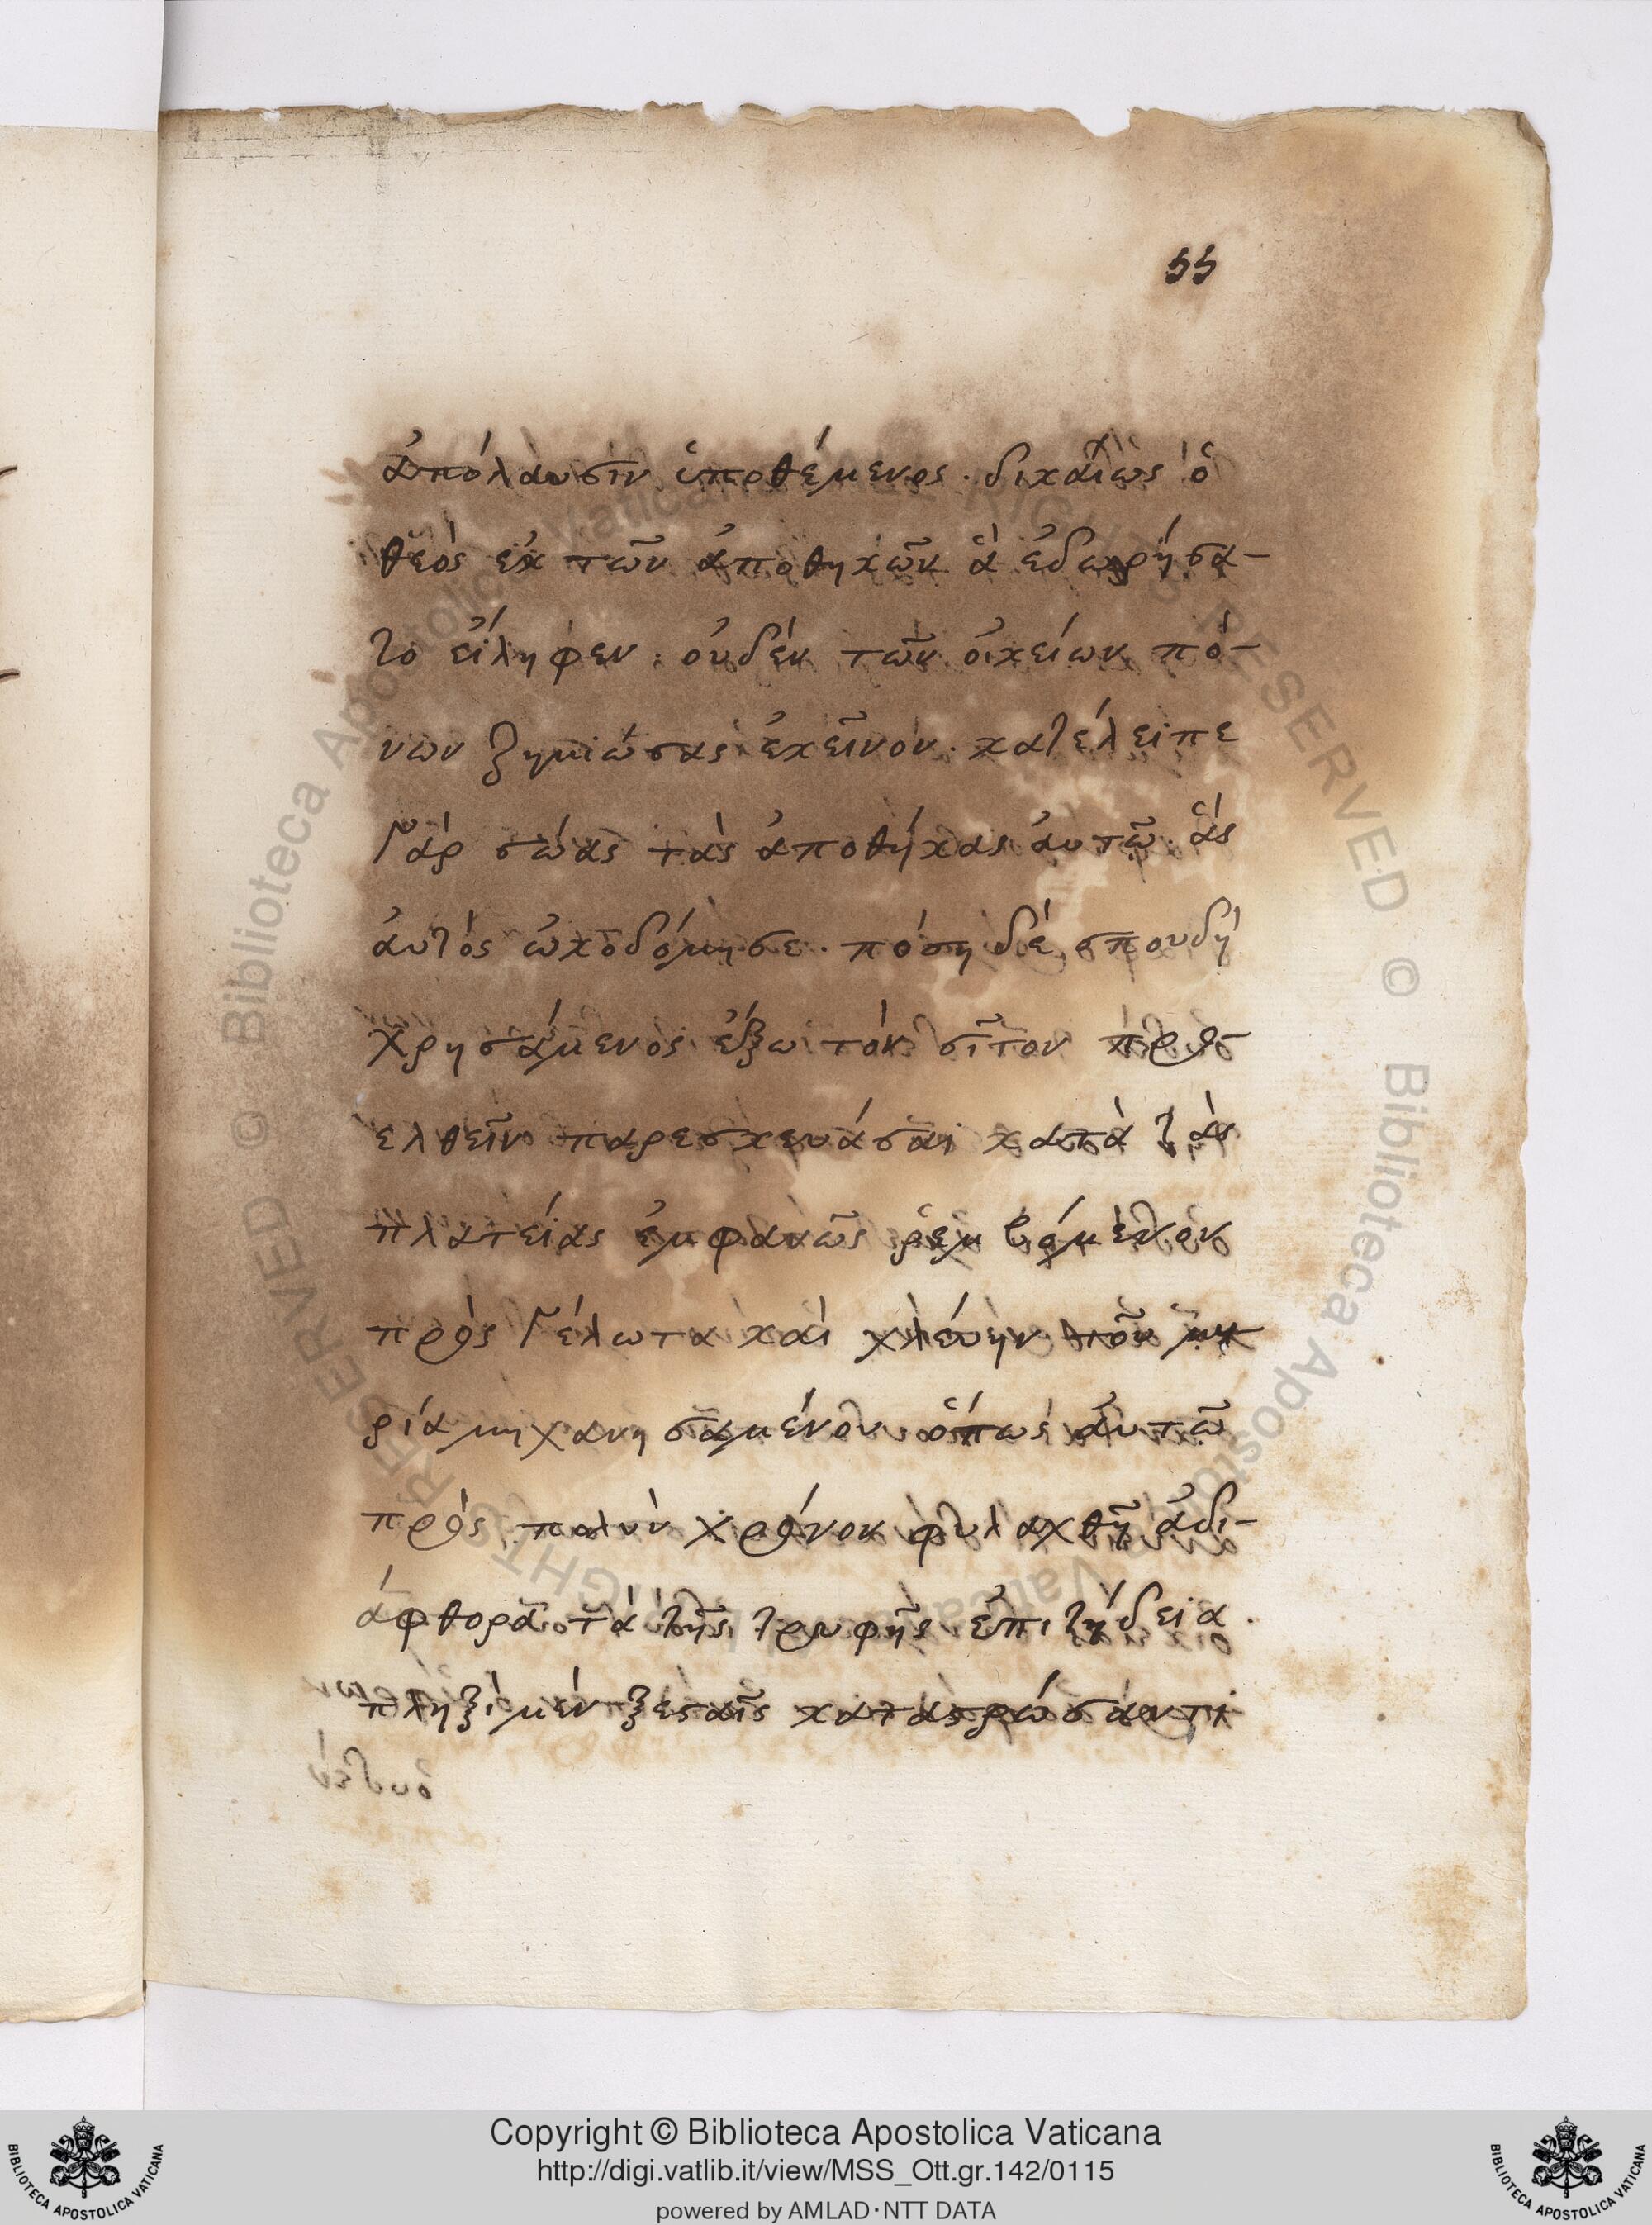 55
ἀπόλαυσιν ὑποθέμενος. δικαίως ὁ
θεὸς ἐκ τῶν ἀποθηκῶν ἃ ἐδωρήσα-
το εἴληφεν. οὐδὲν τῶν οἰκείων πό-
νων ζημιώσας ἐκεῖνον. κατέλειπε
γὰρ σώας τὰς ἀποθήκας αὐτῶ. ἃς
αὐτὸς ὠκοδόμησε. πόση δὲ σπουδῆ
χρησάμενος ἔξω τὸν σῖτον προσ
ελθεῖν παρεσκευάσαι κατὰ τὰς
πλατείας ἐμφανῶς ῥεμβόμενον
πρὸς γέλωτα καὶ χλεύην τοῦ μυ
ρία μηχανησαμένου ὅπως αὐτῶ
πρὸς πολὺν χρόνον φυλαχθῆ ἀδι-
άφθορα τὰ τῆς τρυφῆς ἐπιτήδεια.
πληξὶ μὲν ξεσταῖς καταστρώσαντι
Copyright © Biblioteca Apostolica Vaticana
http://digi.vatlib.it/view/MSS_Ott.gr.142/0115
powered by AMLAD·NTT DATA
BIBLIOTECA APOSTOLICA VATICANA
BIBLIOTECA APOSTOLICA VATICANA